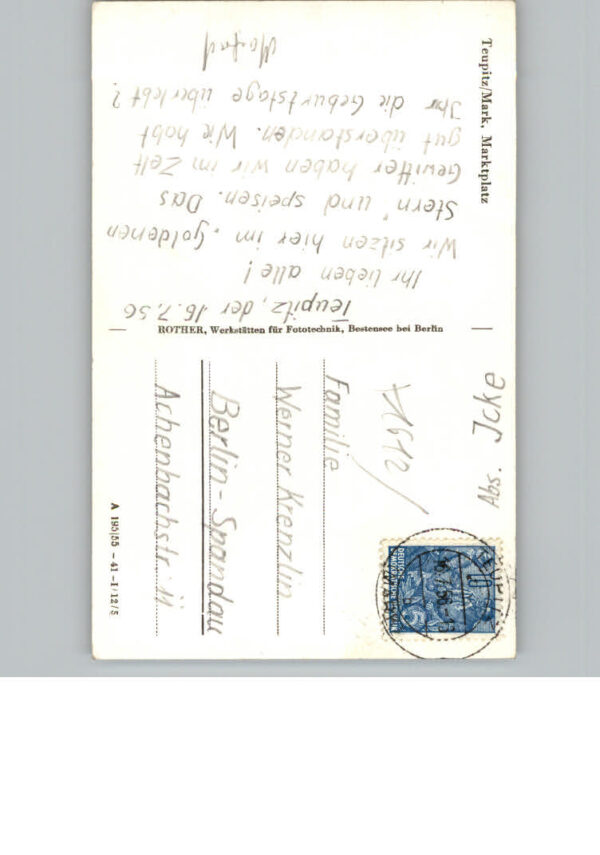 Teupitz/Mark, Marktplatz
Teupitz, der 16.7.56
Ihr lieben alle!
Wir sitzen hier im „Goldenen
Stern" und speisen. Das
Gewitter haben wir im Zelt
gut überstanden. Wie habt
Ihr die Geburtstage überlebt?
ROTHER, Werkstätten für Fototechnik, Bestensee bei Berlin
Abs. Icke
Familie
Werner Krenzlin
Berlin-Spandau
Achenbachstr. 11
A 195/55 - 41 - I/12/5
DEUTSCHE
DEMOKRATISCHE REPUBLIK
10